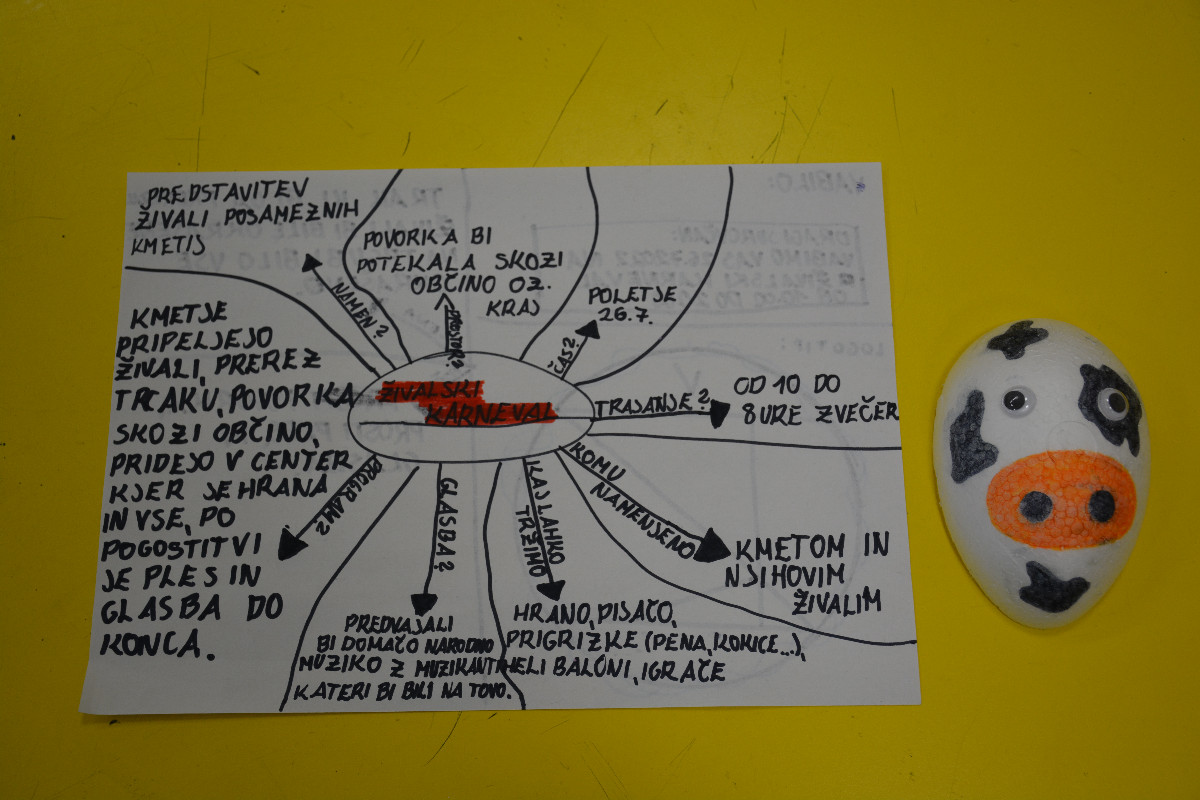 PREDSTAVITEV
ŽIVALI POSAMEZNIH
KMETIJ
NAMEN?
POVORKA BI
POTEKALA SKOZI
OBČINO OZ.
KRAJ
PROSTOR?
POLETJE
26.7.
ČAS?
ŽIVALSKI
KARNEVAL
TRAJANJE?
OD 10 DO
8URE ZVEČER
KOMU
NAMENJENO
KMETOM IN
NJIHOVIM
ŽIVALIM
KAJ LAHKO
TRŽIMO
HRANO, PIJAČO,
PRIGRIZKE (PENA, KOKICE...),
HELI BALONI, IGRAČE
GLASBA?
PREDVAJALI
BI DOMAČO NARODNO
MUZIKO Z MUZIKANTI
KATERI BI BILI NA TOVO.
PROGRAM?
KMETJE
PRIPELJEJO
ŽIVALI, PREREZ
TRAKU, POVORKA
SKOZI OBČINO,
PRIDEJO V CENTER
KJER JE HRANA
IN VSE, PO
POGOSTITVI
JE PLES IN
GLASBA DO
KONCA.
VABILO:
LOGOTIP: